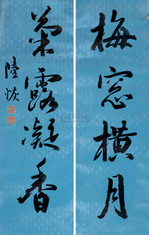 梅窓橫月
菊露凝香
陸恢